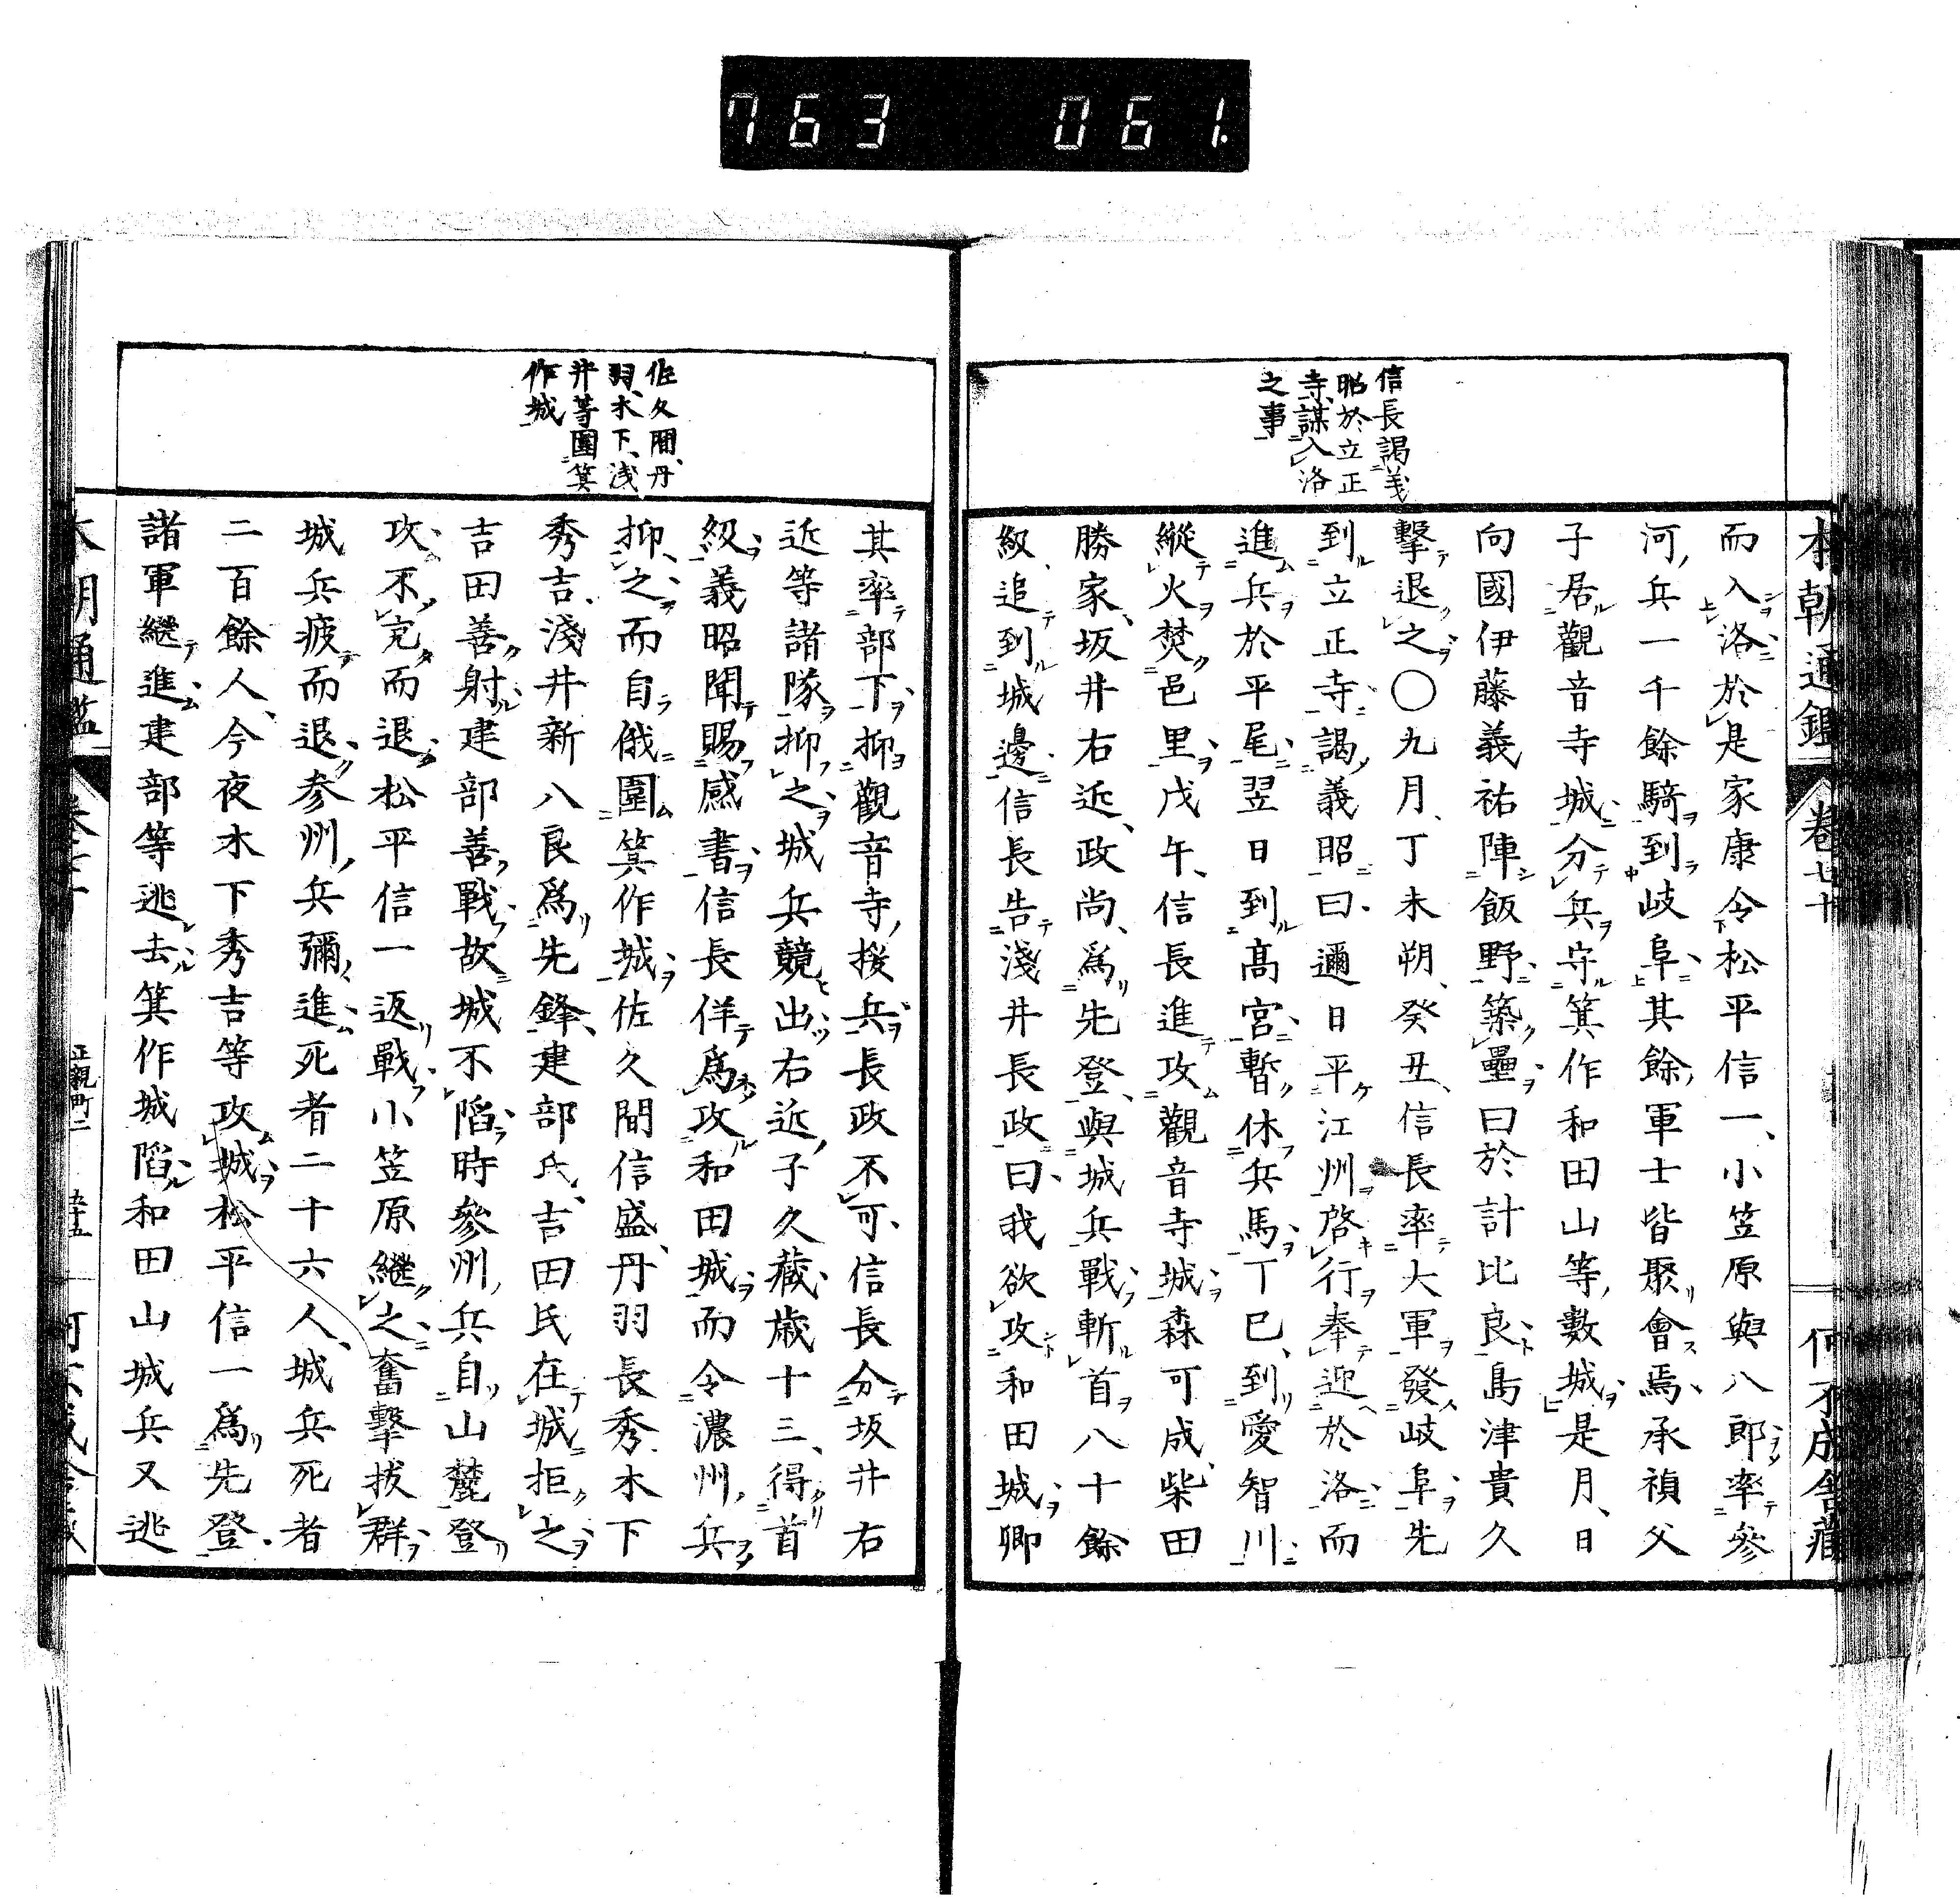 763 061.
本朝通鑑 卷七十 何不成舍藏
信長謁義
昭於立正
寺謀入洛
之事
而入洛於是家康令松平信一、小笠原與八郎率參
河兵一千餘騎到岐阜其餘軍士皆聚會焉、承禎父
子居觀音寺城分兵守箕作和田山等數城是月、日
向國伊藤義祐陣飯野築壘曰於計比良島津貴久
擊退之〇九月、丁未朔、癸丑、信長率大軍發岐阜先
到立正寺謁義昭曰邇日平江州啓行奉迎於洛而
進兵於平尾翌日到高宮暫休兵馬丁巳、到愛智川
縱火焚邑里戊午、信長進攻觀音寺城森可成、柴田
勝家、坂井右近、政尚、爲先登與城兵戰斬首八十餘
級追到城邊信長告淺井長政曰、我欲攻和田城卿
佐久間、丹
羽、木下、浅
井等圍箕
作城
其率部下抑觀音寺援兵長政不可、信長分坂井右
近等諸隊抑之城兵競出右近子久藏歳十三、得首
級義昭聞賜感書信長佯爲攻和田城而令濃州兵
抑之而自俄圍箕作城佐久間信盛、丹羽長秀、木下
秀吉、淺井新八良爲先鋒、建部氏、吉田氏在城拒之
吉田善射建部善戰故城不陷時參州兵自山麓登
攻不克而退松平信一返戰小笠原繼之奮擊拔群
城兵疲而退参州兵彌進死者二十六人、城兵死者
二百餘人、今夜木下秀吉等攻城松平信一爲先登
諸軍繼進建部等逃去箕作城陷和田山城兵又逃